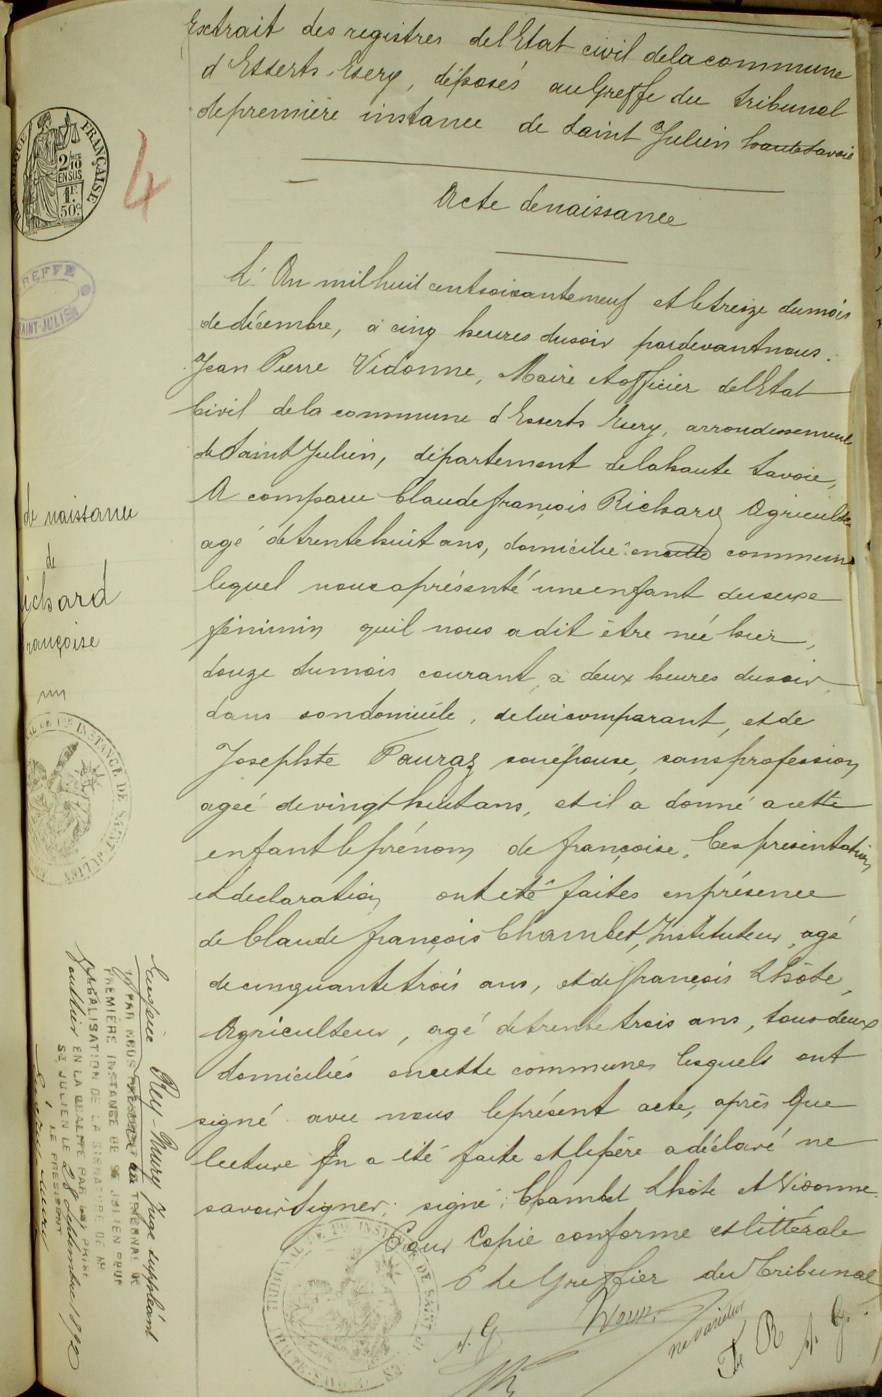 Extrait des registres de l'Etat civil de la commune
d'Esserts-Esery, déposés au Greffe du tribunal
de première instance de Saint Julien haute savoie
4
FRANÇAISE
2/10
EN SUS
1F
50c
GREFFE
SAINT-JULIEN
Acte de naissance
L'An mil huit cent soixante neuf et le treize du mois
de décembre, à cinq heures du soir pardevant nous
Jean Pierre Vidonne, Maire et officier de l'Etat
Civil de la commune d'Esserts Esery, arrondissement
de Saint Julien, département de la haute Savoie,
A comparu Claude françois Richard Agriculteur
agé de trente huit ans, domicilié en cette commune
lequel nous a présenté une enfant du sexe
féminin qu'il nous a dit être née hier,
douze du mois courant, à deux heures du soir,
dans son domicile, de lui comparant, et de
Josephte Fouraz son épouse, sans profession
agée de vingt huit ans, et il a donné a cette
enfant le prénom de françoise. Ces présentation
et déclaration ont été faites en présence
de Claude françois Chambet, Instituteur, agé
de cinquante trois ans, et de françois Lhôte,
Agriculteur, agé de trente trois ans, tous deux
domiciliés en cette commune, lesquels ont
signé avec nous le présent acte, après que
lecture en a été faite et le père a déclaré ne
savoir signer. signé: Chambet Lhôte et Vidonne.
Pour Copie conforme et littérale
Le Greffier du Tribunal
ne varietur
de naissance
de
Richard
françoise
TRIBUNAL DE 1RE INSTANCE DE SAINT JULIEN
Rey-Maury Juge suppléant
PAR NOUS PRESIDENT DU TRIBUNAL DE
PREMIÈRE INSTANCE DE ST JULIEN POUR
LÉGALISATION DE LA SIGNATURE DE MR
EN LA QUALITÉ PAR LUI PRISE
ST JULIEN LE 28 Septembre 1892
LE PRESIDENT
TRIBUNAL DE 1RE INSTANCE DE SAINT JULIEN